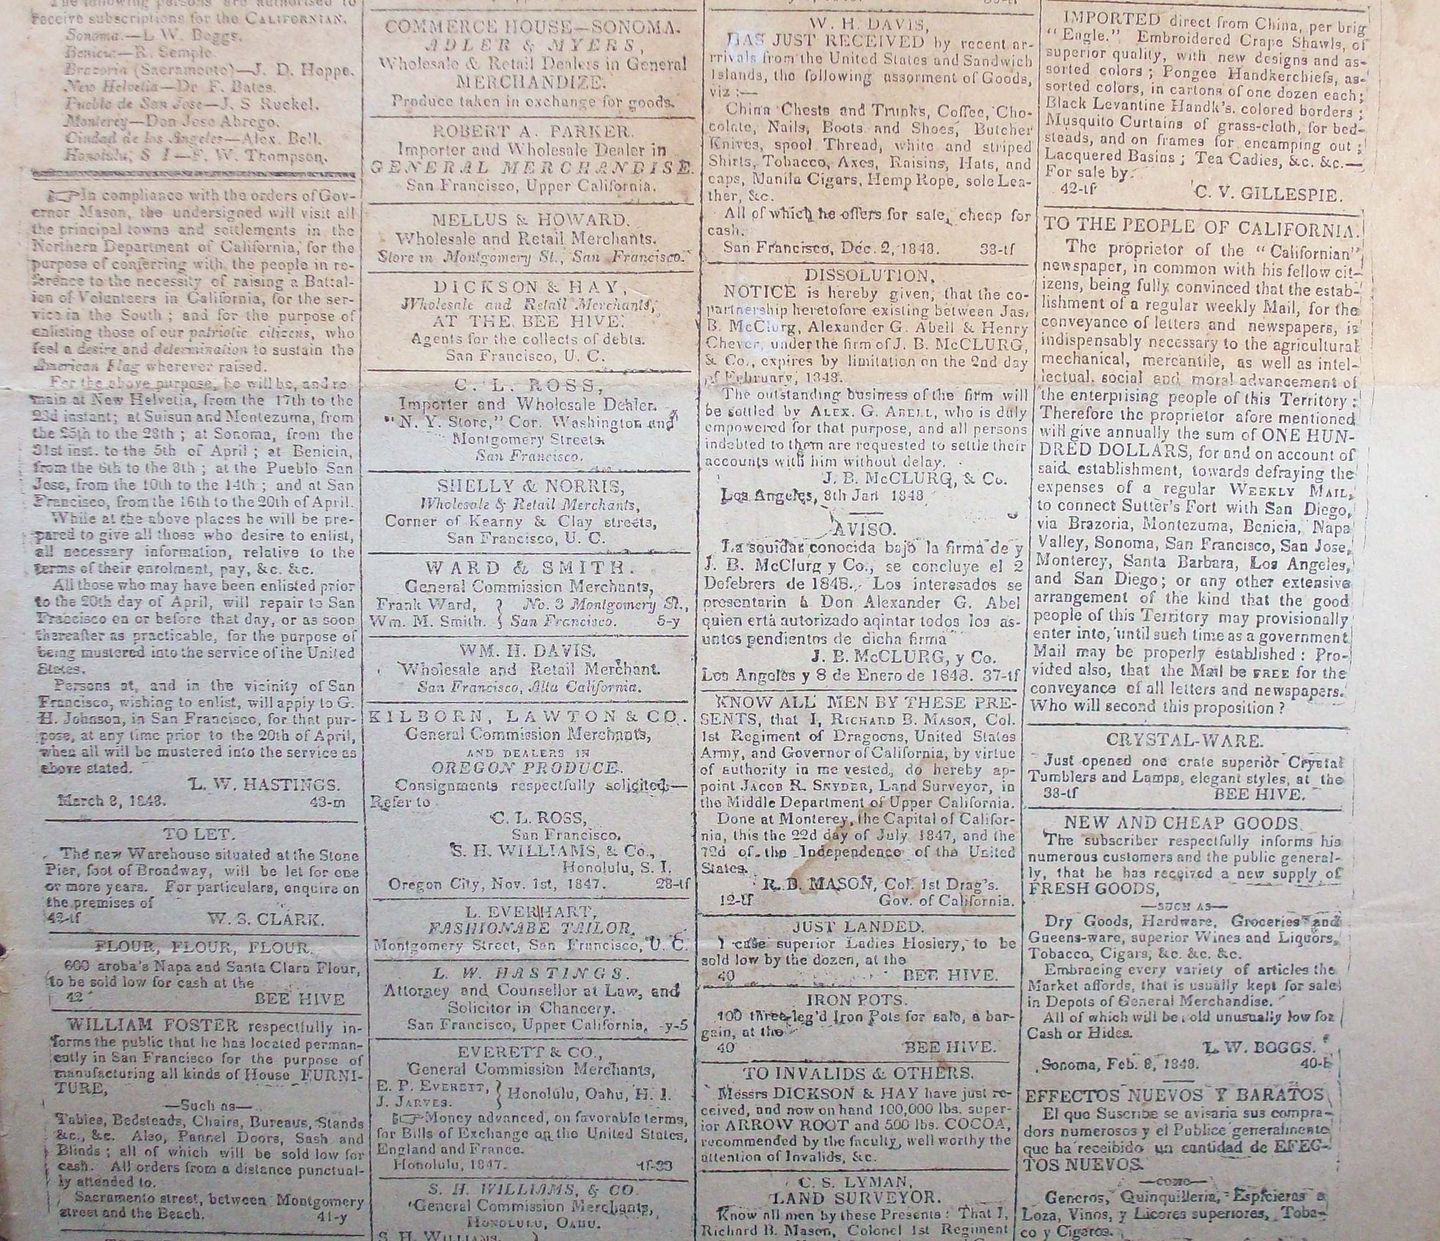 The following persons are authorised to
receive subscriptions for the CALIFORNIAN.
Sonoma.—L W. Boggs.
Benicia—R. Semple.
Brazoria (Sacramento)—J. D. Hoppe.
New Helvetia—Dr F. Bates.
Pueblo de San Jose—J. S Ruckel.
Monterey—Don Jose Abrego.
Ciudad de los Angeles—Alex. Bell.
Honolulu, S I—F. W. Thompson.
☞In compliance with the orders of Gov-
ernor Mason, the undersigned will visit all
the principal towns and settlements in the
Northern Department of California, for the
purpose of conferring with the people in re-
ference to the necessity of raising a Battal-
ion of Volunteers in California, for the ser-
vice in the South ; and for the purpose of
enlisting those of our patriotic citizens, who
feel a desire and determination to sustain the
American Flag wherever raised.
For the above purpose, he will be, and re-
main at New Helvetia, from the 17th to the
23d instant; at Suisun and Montezuma, from
the 25th to the 28th ; at Sonoma, from the
31st inst. to the 5th of April ; at Benicia,
from the 6th to the 8th ; at the Pueblo San
Jose, from the 10th to the 14th ; and at San
Francisco, from the 16th to the 20th of April.
While at the above places he will be pre-
pared to give all those who desire to enlist,
all necessary information, relative to the
terms of their enrolment, pay, &c. &c.
All those who may have been enlisted prior
to the 20th day of April, will repair to San
Francisco on or before that day, or as soon
thereafter as practicable, for the purpose of
being mustered into the service of the United
States.
Persons at, and in the vicinity of San
Francisco, wishing to enlist, will apply to G.
H. Johnson, in San Francisco, for that pur-
pose, at any time prior to the 20th of April,
when all will be mustered into the service as
above stated.
L. W. HASTINGS.
March 8, 1848. 43-m
TO LET.
The new Warehouse situated at the Stone
Pier, foot of Broadway, will be let for one
or more years. For particulars, enquire on
the premises of
42-tf W. S. CLARK.
FLOUR, FLOUR, FLOUR.
600 aroba's Napa and Santa Clara Flour,
to be sold low for cash at the
42 BEE HIVE
WILLIAM FOSTER respectfully in-
forms the public that he has located perman-
ently in San Francisco for the purpose of
manufacturing all kinds of House FURNI-
TURE,
—Such as—
Tables, Bedsteads, Chairs, Bureaus, Stands
&c., &c. Also, Pannel Doors, Sash and
Blinds ; all of which will be sold low for
cash. All orders from a distance punctual-
ly attended to.
Sacramento street, between Montgomery
street and the Beach. 41-y
COMMERCE HOUSE—SONOMA.
ADLER & MYERS,
Wholesale & Retail Dealers in General
MERCHANDIZE.
Produce taken in exchange for goods.
ROBERT A. PARKER.
Importer and Wholesale Dealer in
GENERAL MERCHANDISE.
San Francisco, Upper California.
MELLUS & HOWARD.
Wholesale and Retail Merchants.
Store in Montgomery St., San Francisco.
DICKSON & HAY,
Wholesale and Retail Merchants,
AT THE BEE HIVE.
Agents for the collects of debts.
San Francisco, U. C.
C. L. ROSS,
Importer and Wholesale Dealer.
"N. Y. Store," Cor. Washington and
Montgomery Streets.
San Francisco.
SHELLY & NORRIS,
Wholesale & Retail Merchants,
Corner of Kearny & Clay streets,
San Francisco, U. C.
WARD & SMITH.
General Commission Merchants,
Frank Ward, } No. 3 Montgomery St.,
Wm. M. Smith. } San Francisco. 5-y
WM. H. DAVIS.
Wholesale and Retail Merchant.
San Francisco, Alta California.
KILBORN, LAWTON & CO.
General Commission Merchants,
AND DEALERS IN
OREGON PRODUCE.
Consignments respectfully solicited—
Refer to
C. L. ROSS,
San Francisco,
S. H. WILLIAMS, & Co.,
Honolulu, S. I.
Oregon City, Nov. 1st, 1847. 28-tf
L. EVERHART,
FASHIONABE TAILOR,
Montgomery Street, San Francisco, U. C.
L. W. HASTINGS.
Attorney and Counsellor at Law, and
Solicitor in Chancery.
San Francisco, Upper California, -y-5
EVERETT & CO.,
General Commission Merchants,
E. P. EVERETT, } Honolulu, Oahu, H. I.
J. JARVES. }
☞Money advanced, on favorable terms,
for Bills of Exchange on the United States,
England and France.
Honolulu, 1847. tf-33
S. H. WILLIAMS, & CO.
General Commission Merchants,
HONOLULU, OAHU.
S. H. WILLIAMS,
W. H. DAVIS,
HAS JUST RECEIVED by recent ar-
rivals from the United States and Sandwich
Islands, the following assorment of Goods,
viz :—
China Chests and Trunks, Coffee, Cho-
colate, Nails, Boots and Shoes, Butcher
Knives, spool Thread, white and striped
Shirts, Tobacco, Axes, Raisins, Hats, and
caps, Manila Cigars, Hemp Rope, sole Lea-
ther, &c.
All of which he offers for sale, cheap for
cash.
San Francisco, Dec. 2, 1848. 33-tf
DISSOLUTION,
NOTICE is hereby given, that the co-
partnership heretofore existing between Jas.
B. McClurg, Alexander G. Abell & Henry
Chever, under the firm of J. B. McCLURG,
& Co., expires by limitation on the 2nd day
of February, 1848.
The outstanding business of the firm will
be settled by ALEX. G. ABELL, who is duly
empowered for that purpose, and all persons
indebted to them are requested to settle their
accounts with him without delay.
J. B. McCLURG, & Co.
Los Angeles, 8th Jan 1848
AVISO.
La souidar conocida bajo la firma de y
J. B. McClurg y Co., se concluye el 2
Defebrers de 1848. Los interesados se
presentarin à Don Alexander G. Abel
quien ertà autorizado aqintar todos los as-
untos pendientos de dicha firma
J. B. McCLURG, y Co.
Los Angeles y 8 de Enero de 1848. 37-tf
KNOW ALL MEN BY THESE PRE-
SENTS, that I, RICHARD B. MASON, Col.
1st Regiment of Dragoons, United States
Army, and Governor of California, by virtue
of authority in me vested, do hereby ap-
point JACOB R. SNYDER, Land Surveyor, in
the Middle Department of Upper California.
Done at Monterey, the Capital of Califor-
nia, this the 22d day of July 1847, and the
72d of the Independence of the United
States.
R. B. MASON, Col. 1st Drag's.
12-tf Gov. of California.
JUST LANDED.
1 case superior Ladies Hosiery, to be
sold low by the dozen, at the
40 BEE HIVE.
IRON POTS.
100 three-leg'd Iron Pots for sale, a bar-
gain, at the
40 BEE HIVE.
TO INVALIDS & OTHERS.
Messrs DICKSON & HAY have just re-
ceived, and now on hand 100,000 lbs. super-
ior ARROW ROOT and 500 lbs. COCOA,
recommended by the faculty, well worthy the
attention of Invalids, &c.
C. S. LYMAN,
LAND SURVEYOR.
Know all men by these Presents : That I,
Richard B. Mason, Colonel 1st Regiment
IMPORTED direct from China, per brig
"Eagle." Embroidered Crape Shawls, of
superior quality, with new designs and as-
sorted colors ; Pongee Handkerchiefs, as-
sorted colors, in cartons of one dozen each;
Black Levantine Handk's. colored borders ;
Musquito Curtains of grass-cloth, for bed-
steads, and on frames for encamping out ;
Lacquered Basins ; Tea Cadies, &c. &c.—
For sale by
42-tf C. V. GILLESPIE.
TO THE PEOPLE OF CALIFORNIA.
The proprietor of the "Californian"
newspaper, in common with his fellow cit-
izens, being fully convinced that the estab-
lishment of a regular weekly Mail, for the
conveyance of letters and newspapers, is
indispensably necessary to the agricultural
mechanical, mercantile, as well as intel-
lectual, social and moral advancement of
the enterprising people of this Territory :
Therefore the proprietor afore mentioned
will give annually the sum of ONE HUN-
DRED DOLLARS, for and on account of
said establishment, towards defraying the
expenses of a regular WEEKLY MAIL,
to connect Sutter's Fort with San Diego,
via Brazoria, Montezuma, Benicia, Napa
Valley, Sonoma, San Francisco, San Jose,
Monterey, Santa Barbara, Los Angeles,
and San Diego; or any other extensive
arrangement of the kind that the good
people of this Territory may provisionally
enter into, until such time as a government
Mail may be properly established : Pro-
vided also, that the Mail be FREE for the
conveyance of all letters and newspapers.
Who will second this proposition ?
CRYSTAL-WARE.
Just opened one crate superior Crystal
Tumblers and Lamps, elegant styles, at the
38-tf BEE HIVE.
NEW AND CHEAP GOODS.
The subscriber respectfully informs his
numerous customers and the public general-
ly, that he has received a new supply of
FRESH GOODS,
—SUCH AS—
Dry Goods, Hardware, Groceries and
Queens-ware, superior Wines and Liquors,
Tobacco, Cigars, &c. &c. &c.
Embracing every variety of articles the
Market affords, that is usually kept for sale
in Depots of General Merchandise.
All of which will be sold unusually low for
Cash or Hides.
L. W. BOGGS.
Sonoma, Feb. 8, 1848. 40-t
EFFECTOS NUEVOS Y BARATOS
El que Suscribe se avisaria sus compra-
dors numerosos y el Publice generalmente
que ha receibido un cantidad de EFEC-
TOS NUEVOS.
—COMO—
Generos, Quinquilleria, Espicieras a
Loza, Vinos, y Licores superiores, Toba-
co y Cigaros.